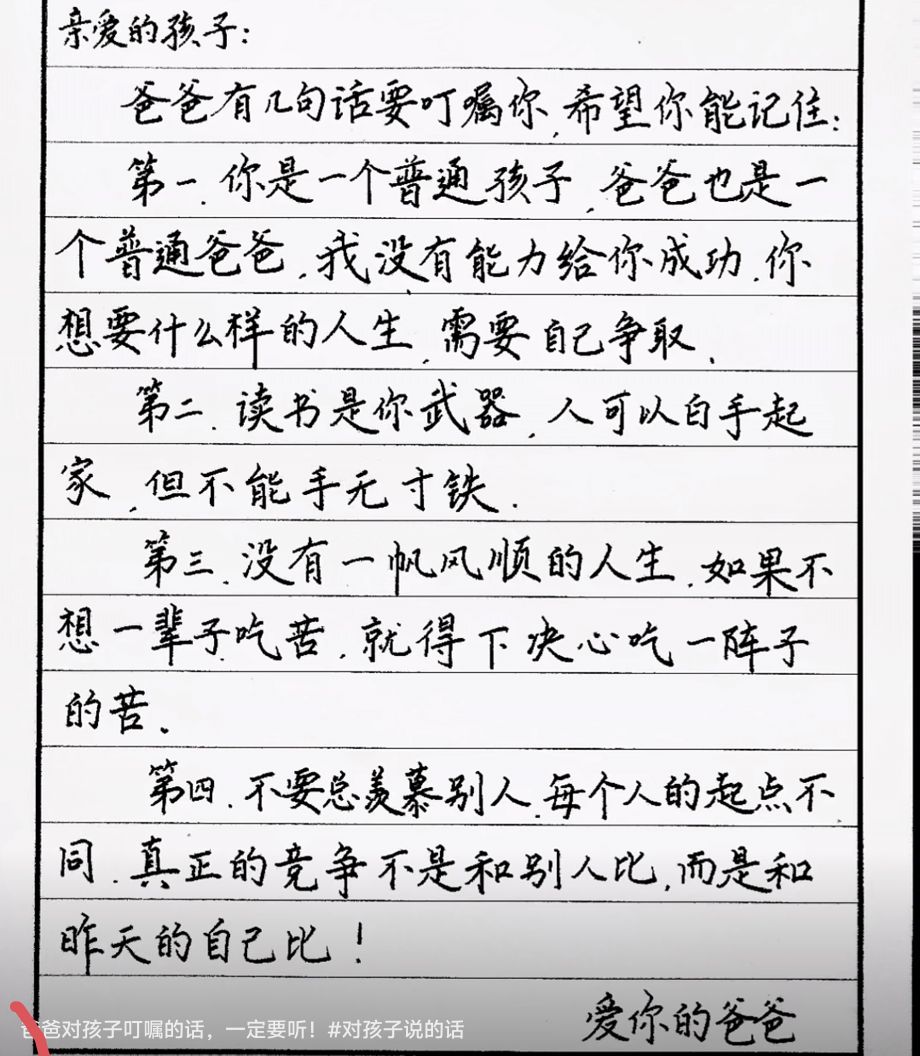 亲爱的孩子:
爸爸有几句话要叮嘱你,希望你能记住:
第一.你是一个普通孩子,爸爸也是一
个普通爸爸,我没有能力给你成功.你
想要什么样的人生,需要自己争取.
第二.读书是你武器,人可以白手起
家,但不能手无寸铁.
第三.没有一帆风顺的人生.如果不
想一辈子吃苦,就得下决心吃一阵子
的苦.
第四.不要总羡慕别人.每个人的起点不
同.真正的竞争不是和别人比,而是和
昨天的自己比!
爱你的爸爸
爸爸对孩子叮嘱的话，一定要听！#对孩子说的话